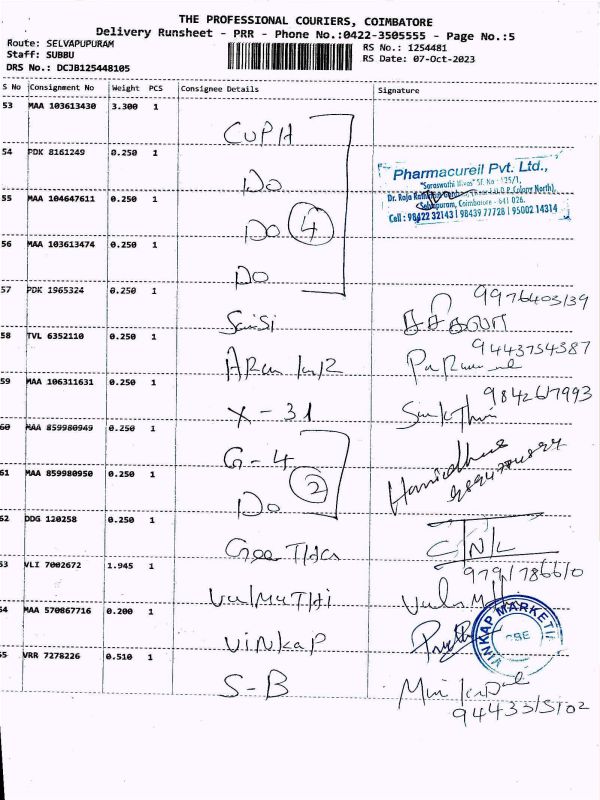 THE PROFESSIONAL COURIERS, COIMBATORE
Delivery Runsheet - PRR - Phone No.:0422-3505555 - Page No.:5
Route: SELVAPUPURAM
Staff: SUBBU
DRS No.: DCJB125448105
RS No.: 1254481
RS Date: 07-Oct-2023
S No Consignment No Weight PCS Consignee Details Signature
53 MAA 103613430 3.300 1
CUPH
54 PDK 8161249 0.250 1
Do
Pharmacureil Pvt. Ltd.,
"Saraswathi Nivas" SF. No - 125/1,
Dr. Raja
Colony North),
Coimbatore - 641 026.
Cell : 98422 32143 | 98439 77728 | 95002 14314
55 MAA 104647611 0.250 1
Do 4
56 MAA 103613474 0.250 1
Do
57 PDK 1965324 0.250 1
9976403139
Saisi
58 TVL 6352110 0.250 1
9443754387
59 MAA 106311631 0.250 1
X - 31
60 MAA 859980949 0.250 1
G - 4
2
61 MAA 859980950 0.250 1
Do
62 DDG 120258 0.250 1
63 VLI 7002672 1.945 1
9791786610
ValMUTHI
64 MAA 570867716 0.200 1
VINKAP
VINKAP MARKETI
CBE
65 VRR 7278226 0.510 1
S - B